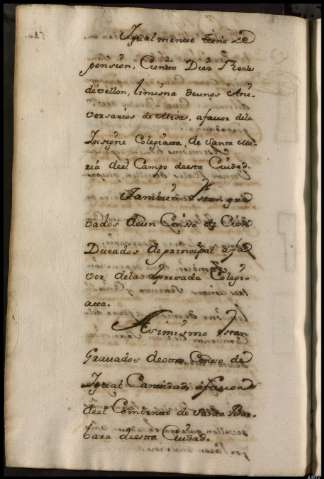 Igualmente
pension, Ciento Diez Reales
de vellon, limosna de unos Ani-
versarios de Misas, a favor de la
Insigne Colegiata, de Santa Ma-
ria del Campo de esta Ciudad.
Tambien Estan gra
vados de un Censo de Cien
Ducados de principal a fa
vor de la Colegi-
ata.
Asimismo Estan
Gravados de otro Censo de
Igual Cantidad, a favor
del Combento de Santa Bar-
bara de esta Ciudad.